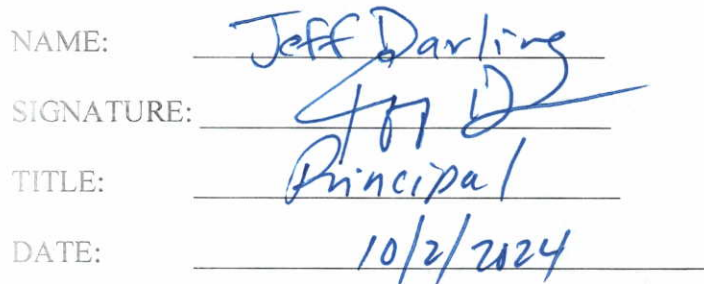 NAME: Jeff Darling
SIGNATURE:
TITLE: Principal
DATE: 10/2/2024